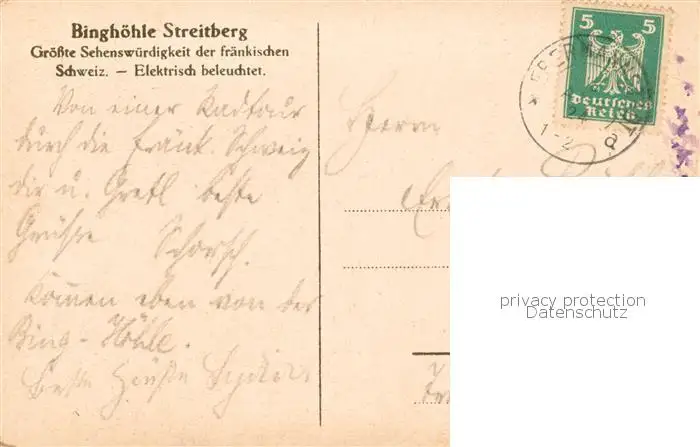 Binghöhle Streitberg
Größte Sehenswürdigkeit der fränkischen
Schweiz. — Elektrisch beleuchtet.
Von einer Radtour
durch die Fränk. Schweiz
dir u. Gretl beste
Grüße Schorsch.
Kommen eben von der
Bing-Höhle.
Beste Grüße
Herrn
5 5
Deutsches
Reich
1-2
privacy protection
Datenschutz